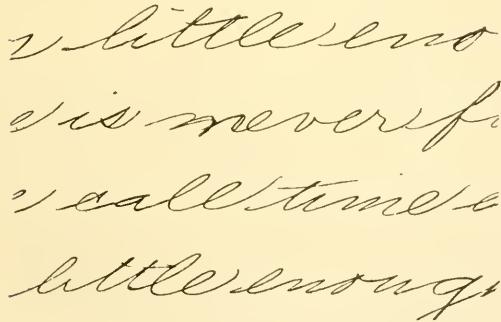 little eno
is never f
call time
little enoug